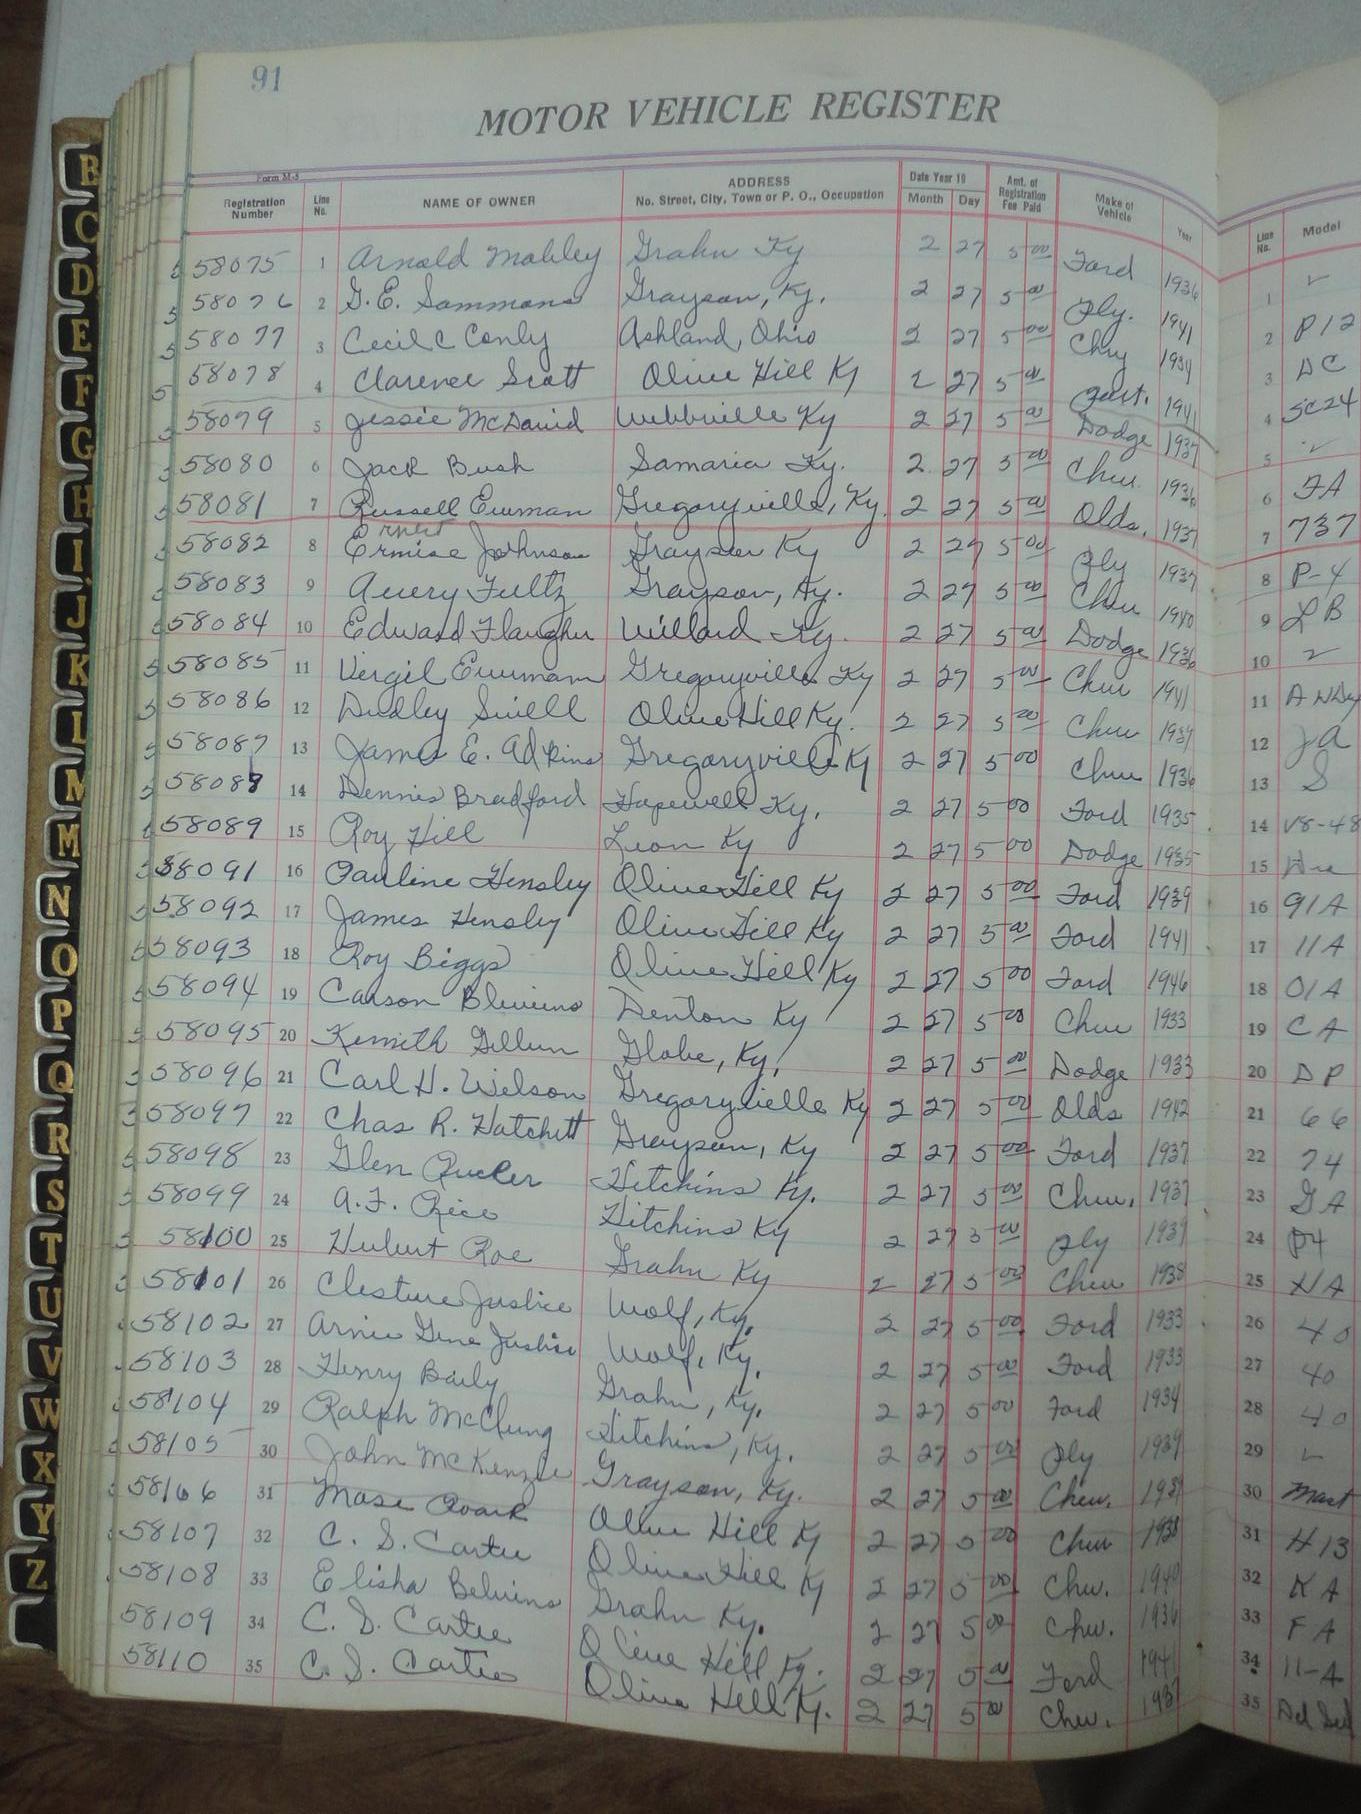 91
MOTOR VEHICLE REGISTER
Form M-5
Registration Number Line No. NAME OF OWNER ADDRESS No. Street, City, Town or P. O., Occupation Date Year 19 Month Day Amt. of Registration Fee Paid Make of Vehicle Year Line No. Model
58075 1 Arnold Mabley Grahn Ky 2 27 5 00 Ford 1936 1
58076 2 G. E. Sammons Grayson, Ky. 2 27 5 00 Ply. 1941 2 P12
58077 3 Cecil C Conly Ashland, Ohio 2 27 5 00 Chry 1934 3 DC
58078 4 Clarence Scott Olive Hill Ky 2 27 5 00 1941 4 SC24
58079 5 Jessie McDavid Webbville Ky 2 27 5 00 Dodge 1937 5
58080 6 Jack Bush Samaria Ky. 2 27 5 00 Chev. 1936 6 FA
58081 7 Russell Gregoryville, Ky. 2 27 5 00 Olds. 1937 7 737
Ernest
58082 8 Johnson Grayson Ky 2 27 5 00 Ply 1937 8 P-4
58083 9 Avery Fultz Grayson, Ky. 2 27 5 00 Chev 1940 9 LB
58084 10 Edward Flaugher Willard Ky. 2 27 5 00 Dodge 1936 10
58085 11 Vergil Gregoryville Ky 2 27 5 00 Chev 1941 11
58086 12 Dudley Olive Hill Ky. 2 27 5 00 Chev 1937 12
58087 13 James E. Adkins Gregoryville Ky 2 27 5 00 Chev 1936 13
58088 14 Dennis Bradford Hopewell Ky. 2 27 5 00 Ford 1935 14 V8-48
58089 15 Roy Hill Leon Ky 2 27 5 00 Dodge 1935 15
58091 16 Pauline Hensley Olive Hill Ky 2 27 5 00 Ford 1939 16 91A
58092 17 James Hensley Olive Hill Ky 2 27 5 00 Ford 1941 17 11A
58093 18 Roy Biggs Olive Hill Ky 2 27 5 00 Ford 1946 18 01A
58094 19 Carson Blevins Denton Ky 2 27 5 00 Chev 1933 19 CA
58095 20 Globe, Ky. 2 27 5 00 Dodge 1933 20 DP
58096 21 Carl H. Wilson Gregoryville Ky 2 27 5 00 Olds 1942 21 66
58097 22 Chas R. Hatchett Grayson, Ky 2 27 5 00 Ford 1937 22 74
58098 23 Glen Rucker Hitchins Ky. 2 27 5 00 Chev. 1937 23 GA
58099 24 A. F. Rice Hitchins Ky 2 27 5 00 Ply 1937 24 P4
58100 25 Hubert Roe Grahn Ky 2 27 5 00 Chev 1938 25 HA
58101 26 Justice Wolf, Ky. 2 27 5 00 Ford 1933 26 40
58102 27 Arnie Gene Justice Wolf, Ky. 2 27 5 00 Ford 1933 27 40
58103 28 Henry Baily Grahn, Ky. 2 27 5 00 Ford 1934 28 40
58104 29 Ralph McClung Hitchins, Ky. 2 27 5 00 Ply 1939 29
58105 30 John McKenzie Grayson, Ky. 2 27 5 00 Chev. 30 Mast
58106 31 Mose Olive Hill Ky 2 27 5 00 Chev 1938 31 H13
58107 32 C. S. Carter Olive Hill Ky 2 27 5 00 Chev. 1940 32 KA
58108 33 Elisha Belvins Grahn Ky. 2 27 5 00 Chev. 1936 33 FA
58109 34 C. S. Carter Olive Hill Ky. 2 27 5 00 Ford 1941 34 11-A
58110 35 C. S. Carter Olive Hill Ky. 2 27 5 00 Chev. 1937 35
B
C
D
E
F
G
H
I
J
K
L
M
M
N
O
P
Q
R
S
T
U
V
W
X
Y
Z